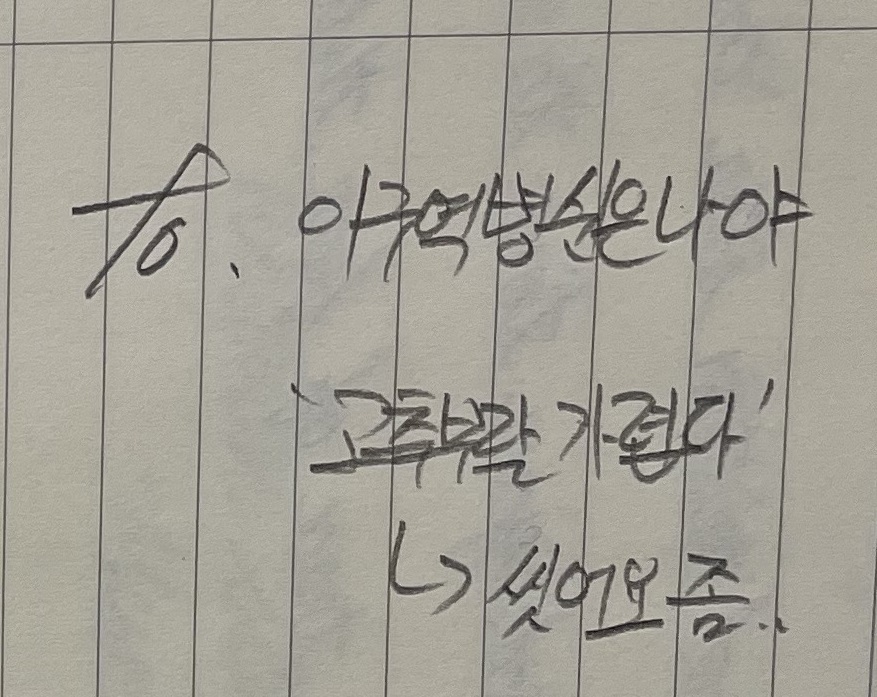 아구역병신은나야
'고추부랄 가렵다'
↳ 씻어요 좀..